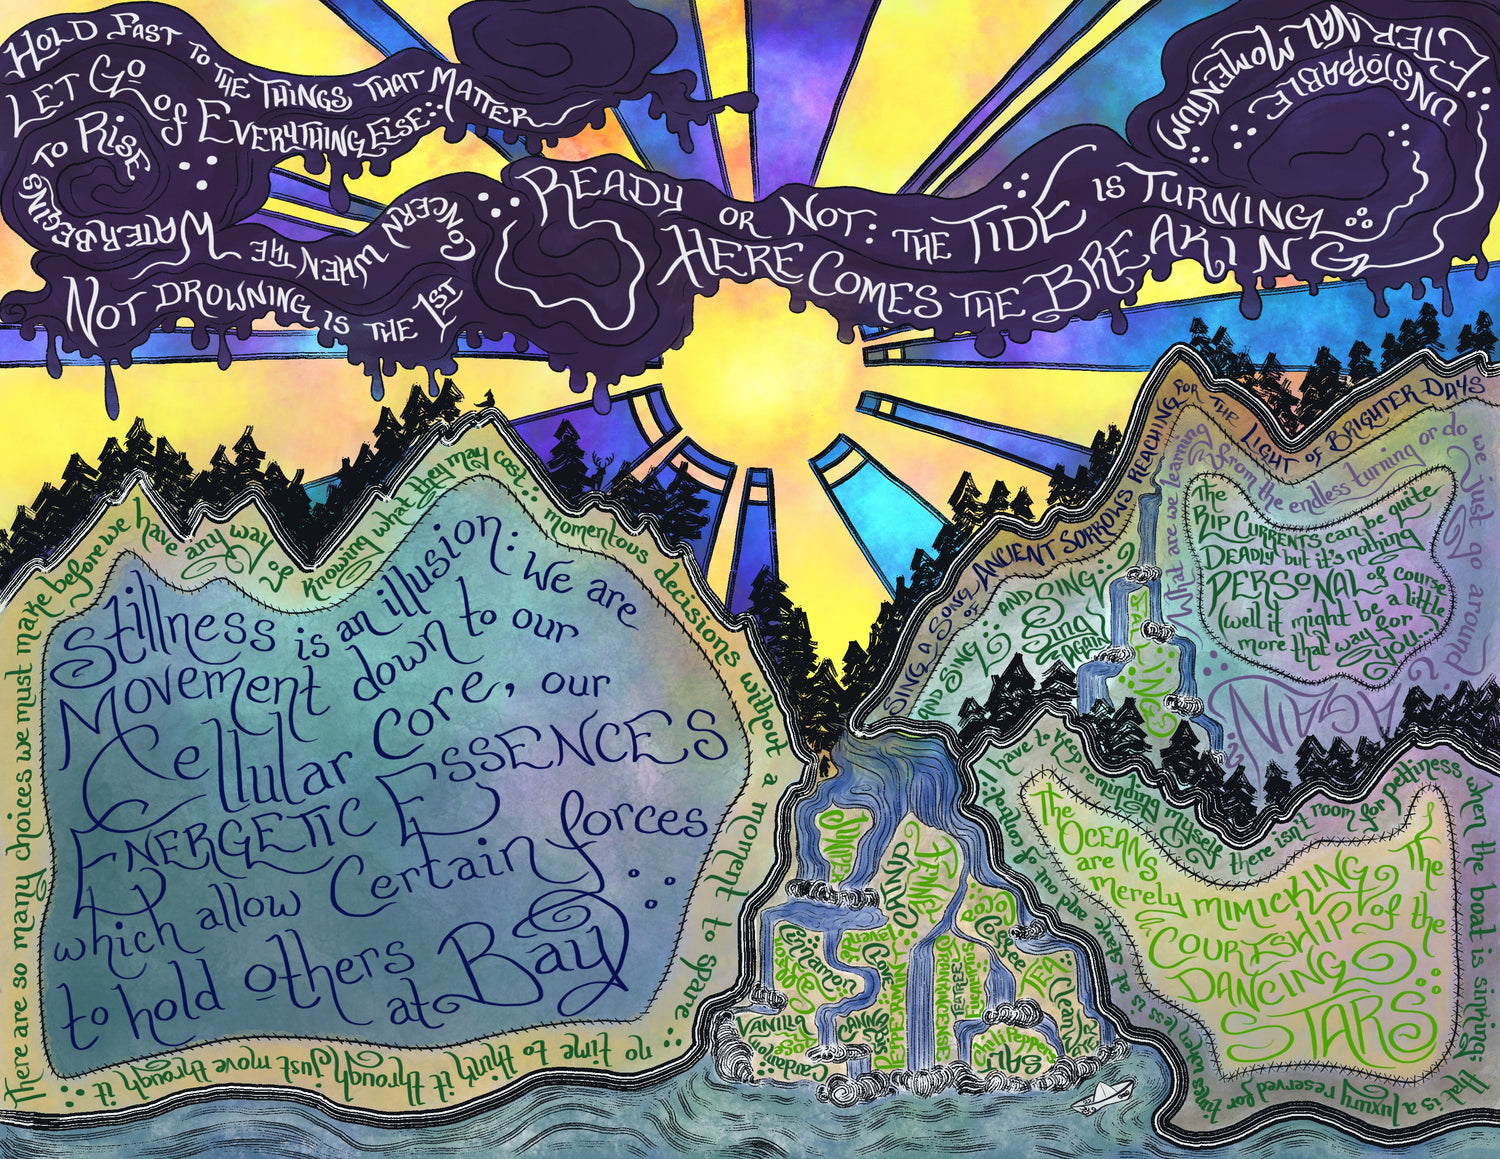 HOLD FAST TO THE THINGS THAT MATTER
LET GO OF EVERYTHING ELSE::
NOT DROWNING IS THE 1ST
CONCERN WHEN THE
WATER BEGINS
TO RISE
READY OR NOT: THE TIDE IS TURNING
HERE COMES THE BREAKING
UNSTOPPABLE
ETERNAL MOMENTUM
There are so many choices we must make before we have any way of knowing what they may cost:: momentous decisions without a moment to spare::
no time to think it through just move through it
Stillness is an illusion: We are
Movement down to our
Cellular Core, our
ENERGETIC ESSENCES
which allow Certain forces
to hold others at Bay
SING A SONG OF ANCIENT SORROWS REACHING FOR THE LIGHT OF BRIGHTER DAYS
AND SING:: AND SING:
Sing
AGAIN
What are we learning from the endless turning or do we just go around
AGAIN?
The
RIP CURRENTS can be quite
DEADLY but it's nothing
PERSONAL of course
(well it might be a little
more that way for
you...)
I have to keep reminding myself there isn't room for pettiness when the boat is sinking:
that is a luxury reserved for times when less is at stake and out of control::
The
OCEANS
are
merely MIMICKING The
COURTSHIP of the
DANCING
STARS
JUNIPER
CATNIP
Coca
Coffee
TEA
Cinnamon
Clove
VANILLA
Cardamom
CANNABIS
PEPPERMINT
FRANKINCENSE
TEA TREE
Chili Peppers
SALT